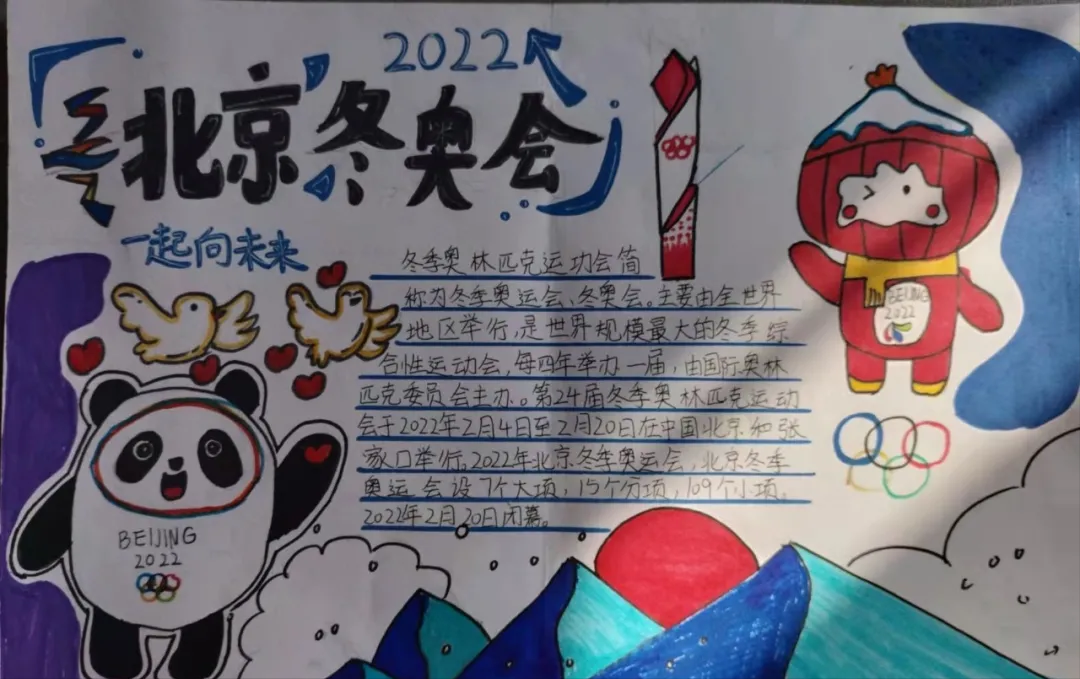 2022
北京冬奥会
一起向未来
冬季奥林匹克运动会简
称为冬季奥运会、冬奥会。主要由全世界
地区举行,是世界规模最大的冬季综
合性运动会,每四年举办一届,由国际奥林
匹克委员会主办。第24届冬季奥林匹克运动
会于2022年2月4日至2月20日在中国北京和张
家口举行。2022年北京冬季奥运会,北京冬季
奥运会设7个大项,15个分项,109个小项。
2022年2月20日闭幕。
BEIJING
2022
BEIJING
2022